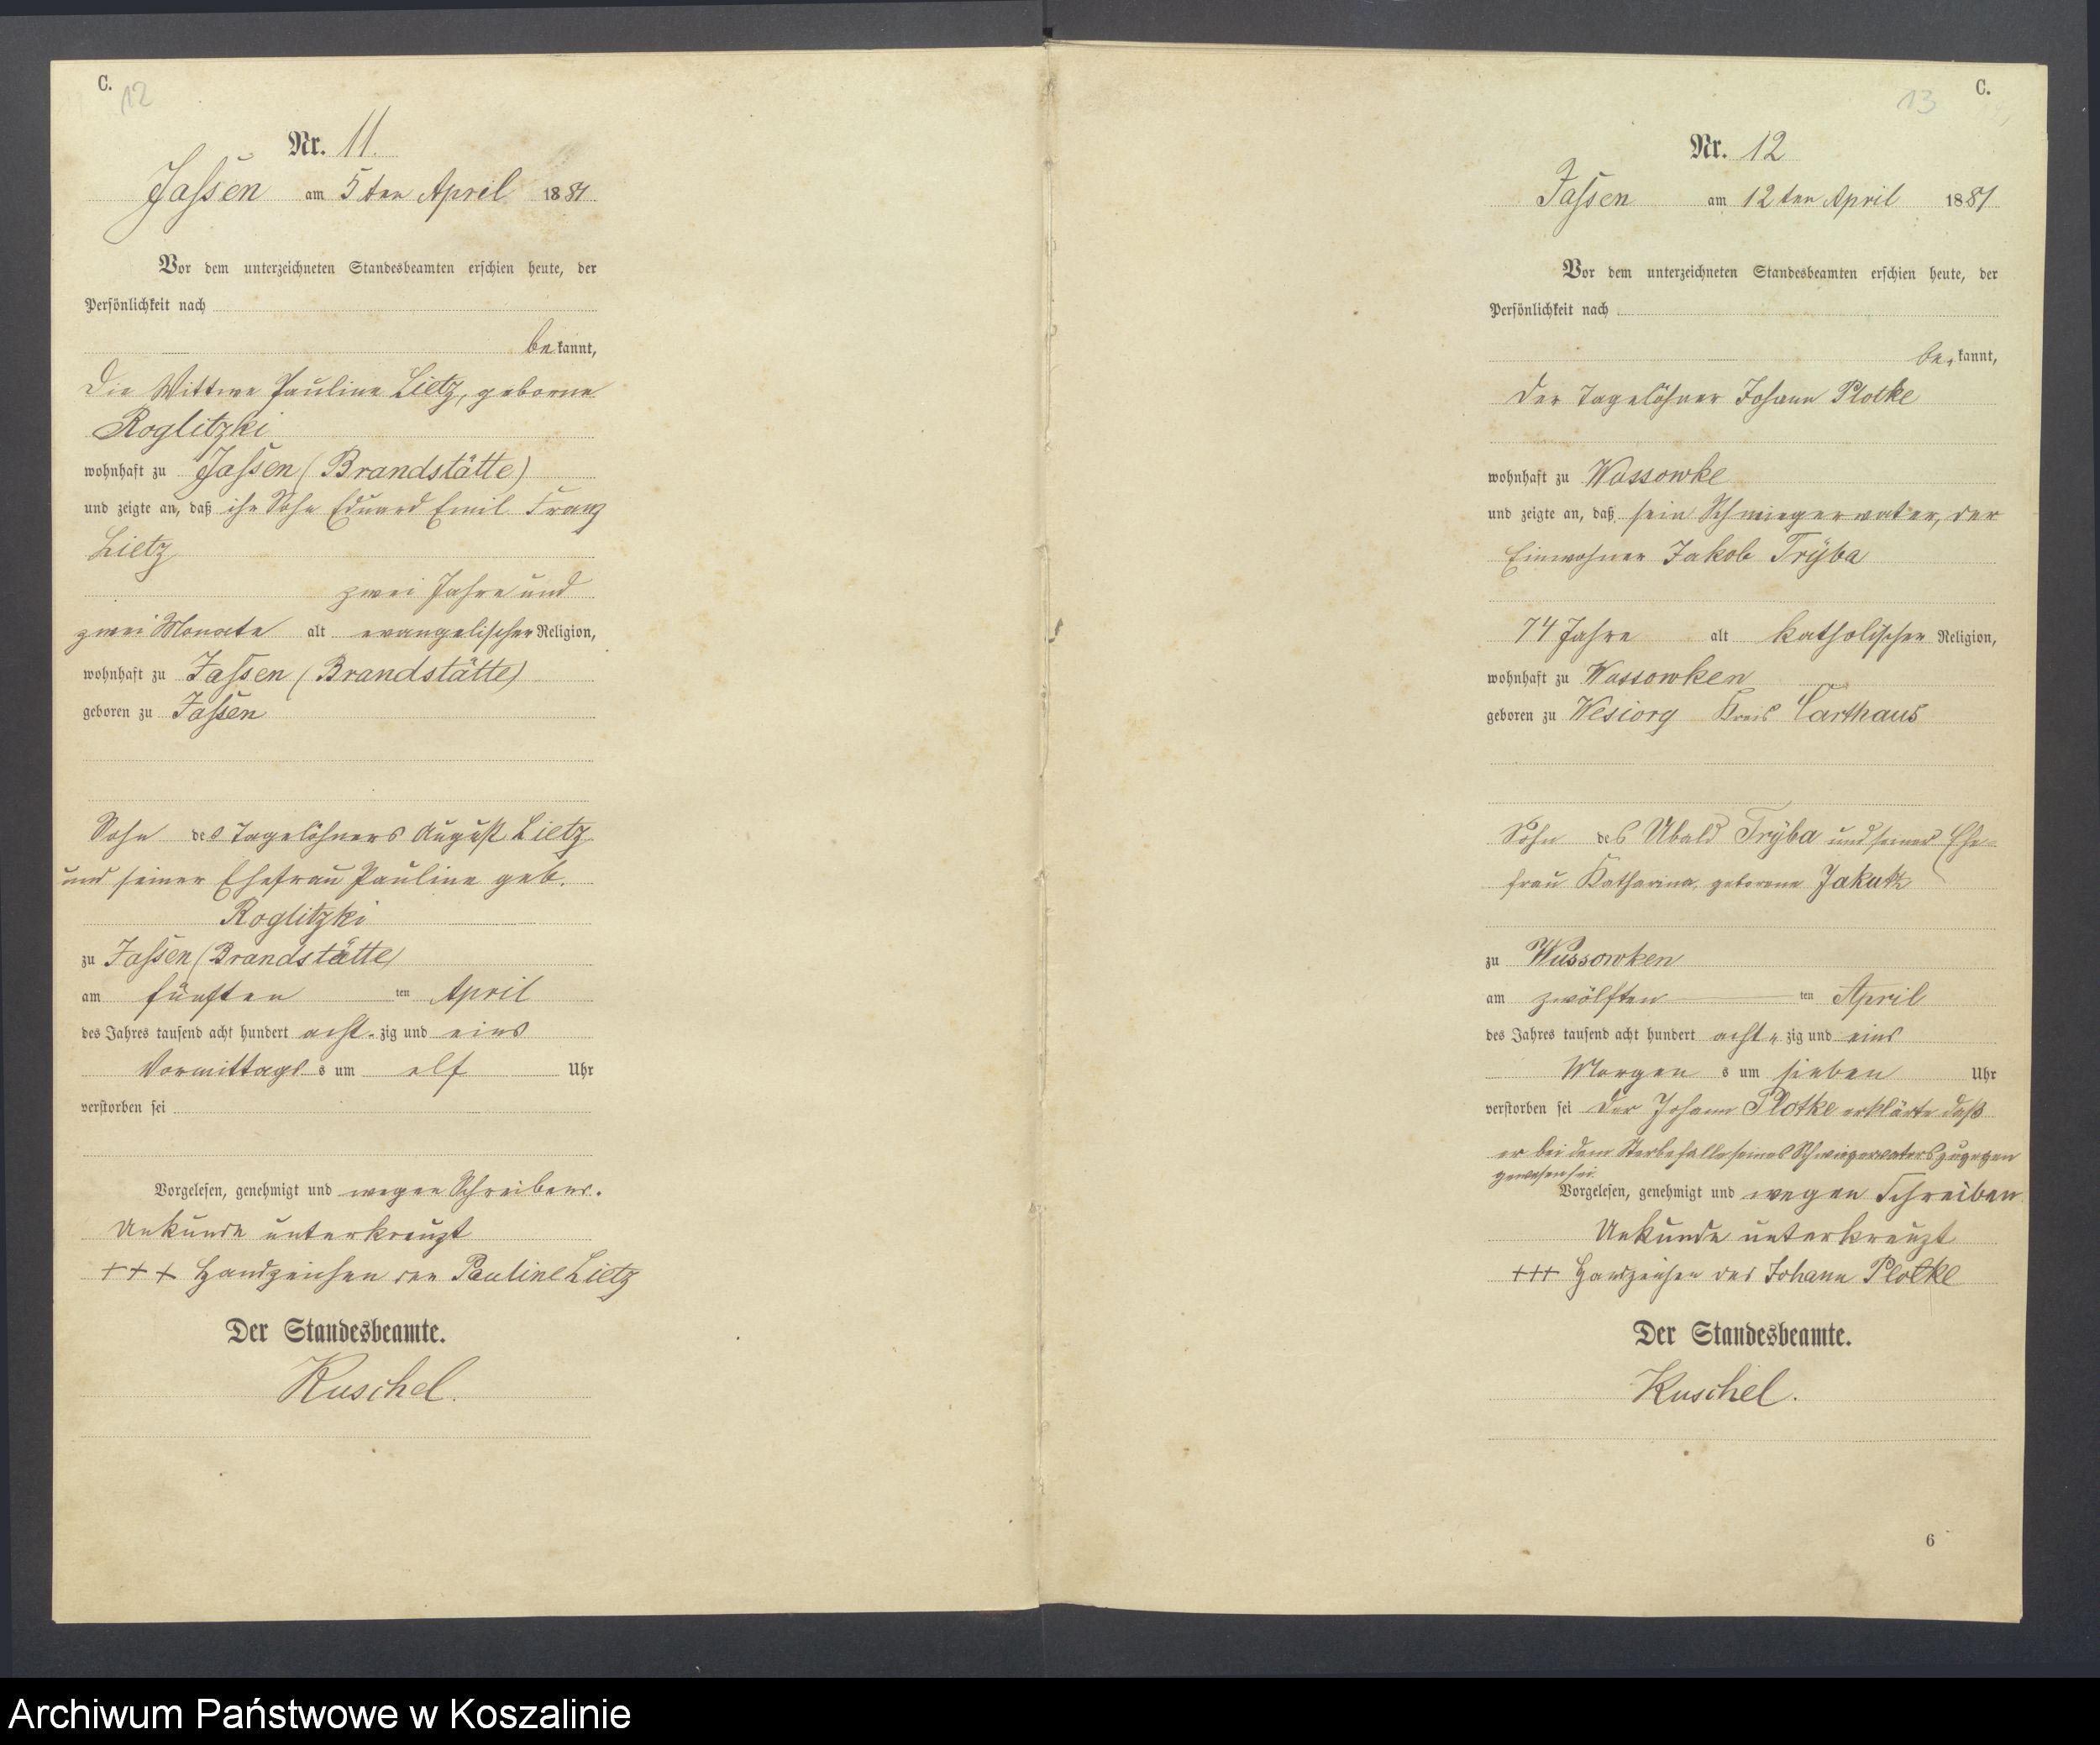 C.
12
Nr. 11.
Jassen am 5ten April 1881
Vor dem unterzeichneten Standesbeamten erschien heute, der
Persönlichkeit nach
bekannt,
die Wittwe Pauline Lietz, geborne
Roglitzki
wohnhaft zu Jassen (Brandstätte)
und zeigte an, daß ihr Sohn Eduard Emil Franz
Lietz
zwei Jahre und
zwei Monate alt evangelischer Religion,
wohnhaft zu Jassen (Brandstätte)
geboren zu Jassen
Sohn des Tagelöhners August Lietz
und seiner Ehefrau Pauline geb.
Roglitzki
zu Jassen (Brandstätte)
am fünften ten April
des Jahres tausend acht hundert acht-zig und eins
Vormittags s um elf Uhr
verstorben sei
Vorgelesen, genehmigt und wegen Schreibens-
Unkunde unterkreuzt
+++ Handzeichen der Pauline Lietz
Der Standesbeamte.
Kuschel.
C.
13
Nr. 12
Jassen am 12ten April 1881
Vor dem unterzeichneten Standesbeamten erschien heute, der
Persönlichkeit nach
bekannt,
der Tagelöhner Johann Plotke
wohnhaft zu Wussowke
und zeigte an, daß sein Schwiegervater, der
Einwohner Jakob Trÿba
74 Jahre alt katholischer Religion,
wohnhaft zu Wussowken
geboren zu Wesiorg Kreis Carthaus
Sohn des Ubald Trÿba und seiner Ehe-
frau Katharina, geborene Jakutz
zu Wussowken
am zwölften ten April
des Jahres tausend acht hundert acht-zig und eins
Morgen s um sieben Uhr
verstorben sei der Johann Plotke erklärte daß
er bei dem Sterbefalle seines Schwiegervaters zugegen
gewesen sei.
Vorgelesen, genehmigt und wegen Schreiben
Unkunde unterkreuzt
+++ Handzeichen des Johann Plotke
Der Standesbeamte.
Kuschel.
6
Archiwum Państwowe w Koszalinie